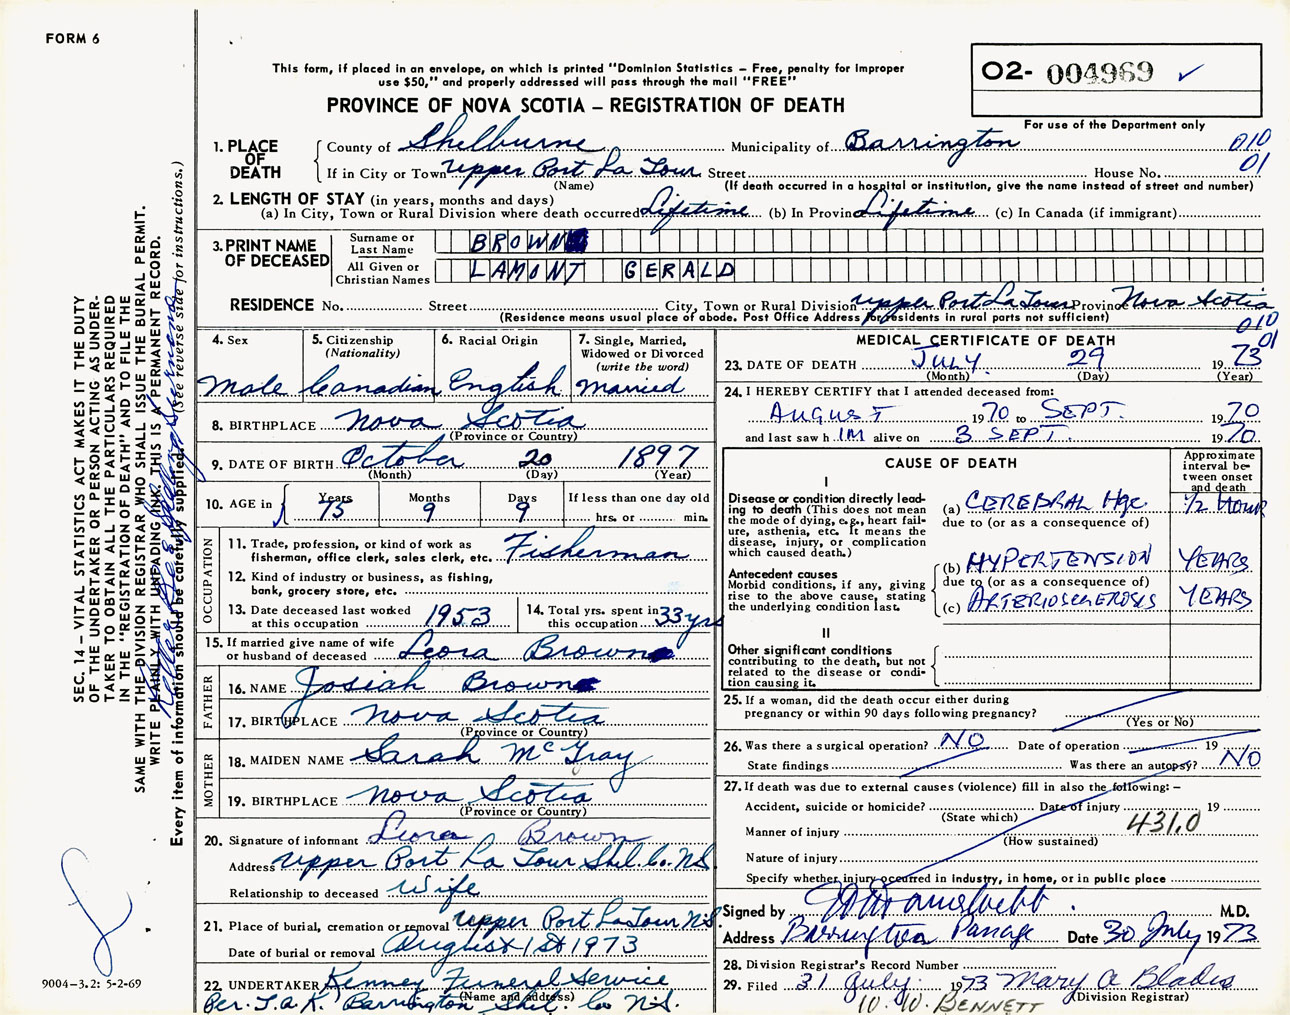 FORM 6
This form, if placed in an envelope, on which is printed "Dominion Statistics – Free, penalty for improper
use $50," and properly addressed will pass through the mail "FREE"
O2- 004969 ✓
For use of the Department only
PROVINCE OF NOVA SCOTIA – REGISTRATION OF DEATH
1. PLACE OF DEATH
County of Shelburne Municipality of Barrington 010
If in City or Town Upper Port La Tour Street House No. 01
(Name) (If death occurred in a hospital or institution, give the name instead of street and number)
2. LENGTH OF STAY (in years, months and days)
(a) In City, Town or Rural Division where death occurred Lifetime (b) In Province Lifetime (c) In Canada (if immigrant)
3. PRINT NAME OF DECEASED
Surname or Last Name BROWN
All Given or Christian Names LAMONT GERALD
RESIDENCE No. Street City, Town or Rural Division Upper Port La Tour Province Nova Scotia
(Residence means usual place of abode. Post Office Address for residents in rural parts not sufficient)
010
01
4. Sex
Male
5. Citizenship
(Nationality)
Canadian
6. Racial Origin
English
7. Single, Married,
Widowed or Divorced
(write the word)
Married
8. BIRTHPLACE Nova Scotia
(Province or Country)
9. DATE OF BIRTH October 20 1897
(Month) (Day) (Year)
10. AGE in
Years 75
Months 9
Days 9
If less than one day old
hrs. or min.
OCCUPATION
11. Trade, profession, or kind of work as
fisherman, office clerk, sales clerk, etc. Fisherman
12. Kind of industry or business, as fishing,
bank, grocery store, etc.
13. Date deceased last worked
at this occupation 1953
14. Total yrs. spent in
this occupation 33 yrs
15. If married give name of wife
or husband of deceased Leora Brown
FATHER
16. NAME Josiah Brown
17. BIRTHPLACE Nova Scotia
(Province or Country)
MOTHER
18. MAIDEN NAME Sarah McGray
19. BIRTHPLACE Nova Scotia
(Province or Country)
20. Signature of informant Leora Brown
Address Upper Port La Tour Shel. Co. N.S.
Relationship to deceased Wife
21. Place of burial, cremation or removal Upper Port La Tour N.S.
Date of burial or removal August 1st 1973
22. UNDERTAKER Kenney Funeral Service
(Name and address)
Per. J.A.K. Barrington Shel. Co N.S.
MEDICAL CERTIFICATE OF DEATH
23. DATE OF DEATH JULY 29 1973
(Month) (Day) (Year)
24. I HEREBY CERTIFY that I attended deceased from:
AUGUST 1970 to SEPT. 1970
and last saw h IM alive on 3 SEPT. 1970
CAUSE OF DEATH
Approximate
interval be-
tween onset
and death
I
Disease or condition directly lead-
ing to death (This does not mean
the mode of dying, e.g., heart fail-
ure, asthenia, etc. It means the
disease, injury, or complication
which caused death.)
(a) CEREBRAL Hge. 1/2 HOUR
due to (or as a consequence of)
Antecedent causes
Morbid conditions, if any, giving
rise to the above cause, stating
the underlying condition last.
(b) HYPERTENSION YEARS
due to (or as a consequence of)
(c) ARTERIOSCLEROSIS YEARS
II
Other significant conditions
contributing to the death, but not
related to the disease or condi-
tion causing it.
25. If a woman, did the death occur either during
pregnancy or within 90 days following pregnancy?
(Yes or No)
26. Was there a surgical operation? NO Date of operation 19
State findings Was there an autopsy? NO
27. If death was due to external causes (violence) fill in also the following: –
Accident, suicide or homicide? Date of injury 19
(State which)
Manner of injury 431.0
(How sustained)
Nature of injury
Specify whether injury occurred in industry, in home, or in public place
Signed by M.D.
Address Barrington Passage Date 30 July 1973
28. Division Registrar's Record Number
29. Filed 31 July 1973 Mary A Blades
(Division Registrar)
W. W. BENNETT
SEC. 14 – VITAL STATISTICS ACT MAKES IT THE DUTY
OF THE UNDERTAKER OR PERSON ACTING AS UNDER-
TAKER TO OBTAIN ALL THE PARTICULARS REQUIRED
IN THE "REGISTRATION OF DEATH" AND TO FILE THE
SAME WITH THE DIVISION REGISTRAR WHO SHALL ISSUE THE BURIAL PERMIT.
WRITE PLAINLY WITH UNFADING INK. THIS IS A PERMANENT RECORD.
Every item of information should be carefully supplied. (See reverse side for instructions.)
9004-3.2: 5-2-69